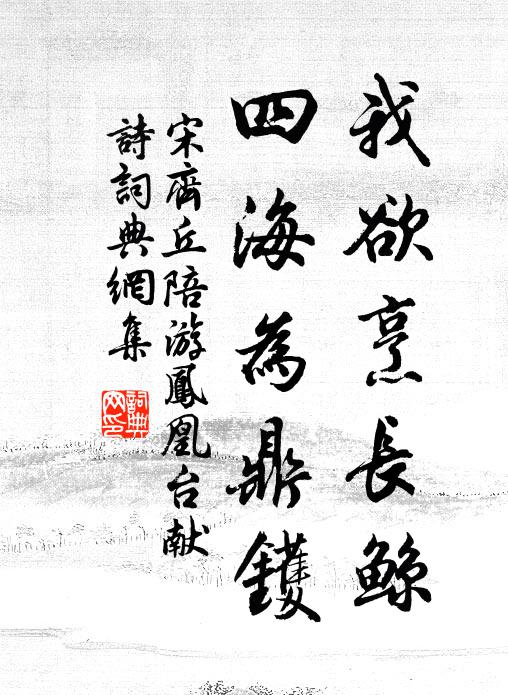 我欲烹長鯨
四海為鼎鑊
宋齊丘陪游鳳凰台献
詩詞典網集
詞典网印